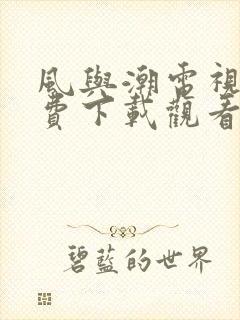 風與潮電視
費下載觀看
碧藍的世界